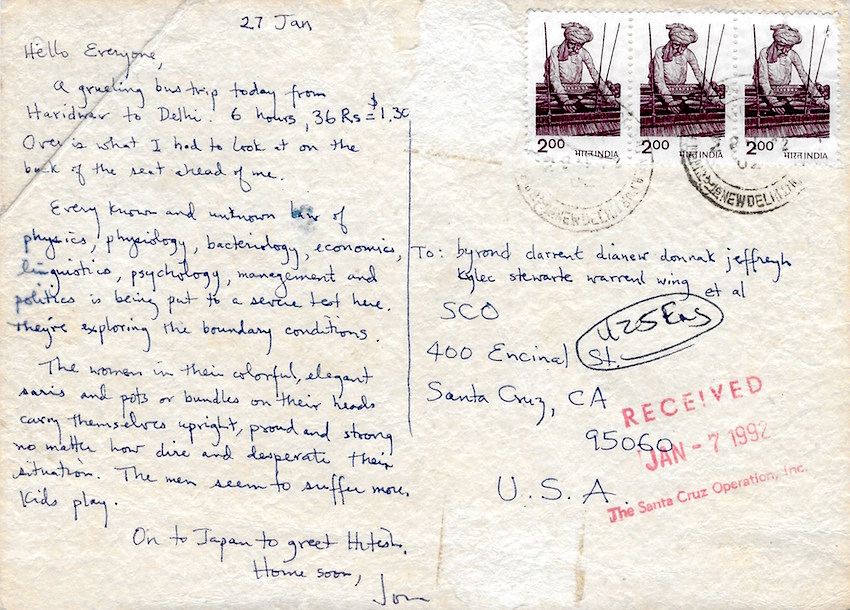 27 Jan
Hello Everyone,
A grueling bus trip today from
Haridwar to Delhi. 6 hours, 36 Rs = $1.30
Over is what I had to look at on the
back of the seat ahead of me.
Every known and unknown law of
physics, physiology, bacteriology, economics,
linguistics, psychology, management and
politics is being put to a severe test here.
They're exploring the boundary conditions.
The women in their colorful, elegant
saris and pots or bundles on their heads
carry themselves upright, proud and strong
no matter how dire and desperate their
situation. The men seem to suffer more.
Kids play.
On to Japan to greet Hitesh.
Home soon,
Jon
2.00 भारत INDIA
2.00 भारत INDIA
2.00 भारत INDIA
NEW DELHI
NEW DELHI
To: byrond clarrent dianew donnak jeffreyh
kylec stewarte warrenl wing et al
SCO
425 Eng
400 Encinal St.
Santa Cruz, CA
95060
U.S.A.
RECEIVED
JAN - 7 1992
The Santa Cruz Operation, Inc.